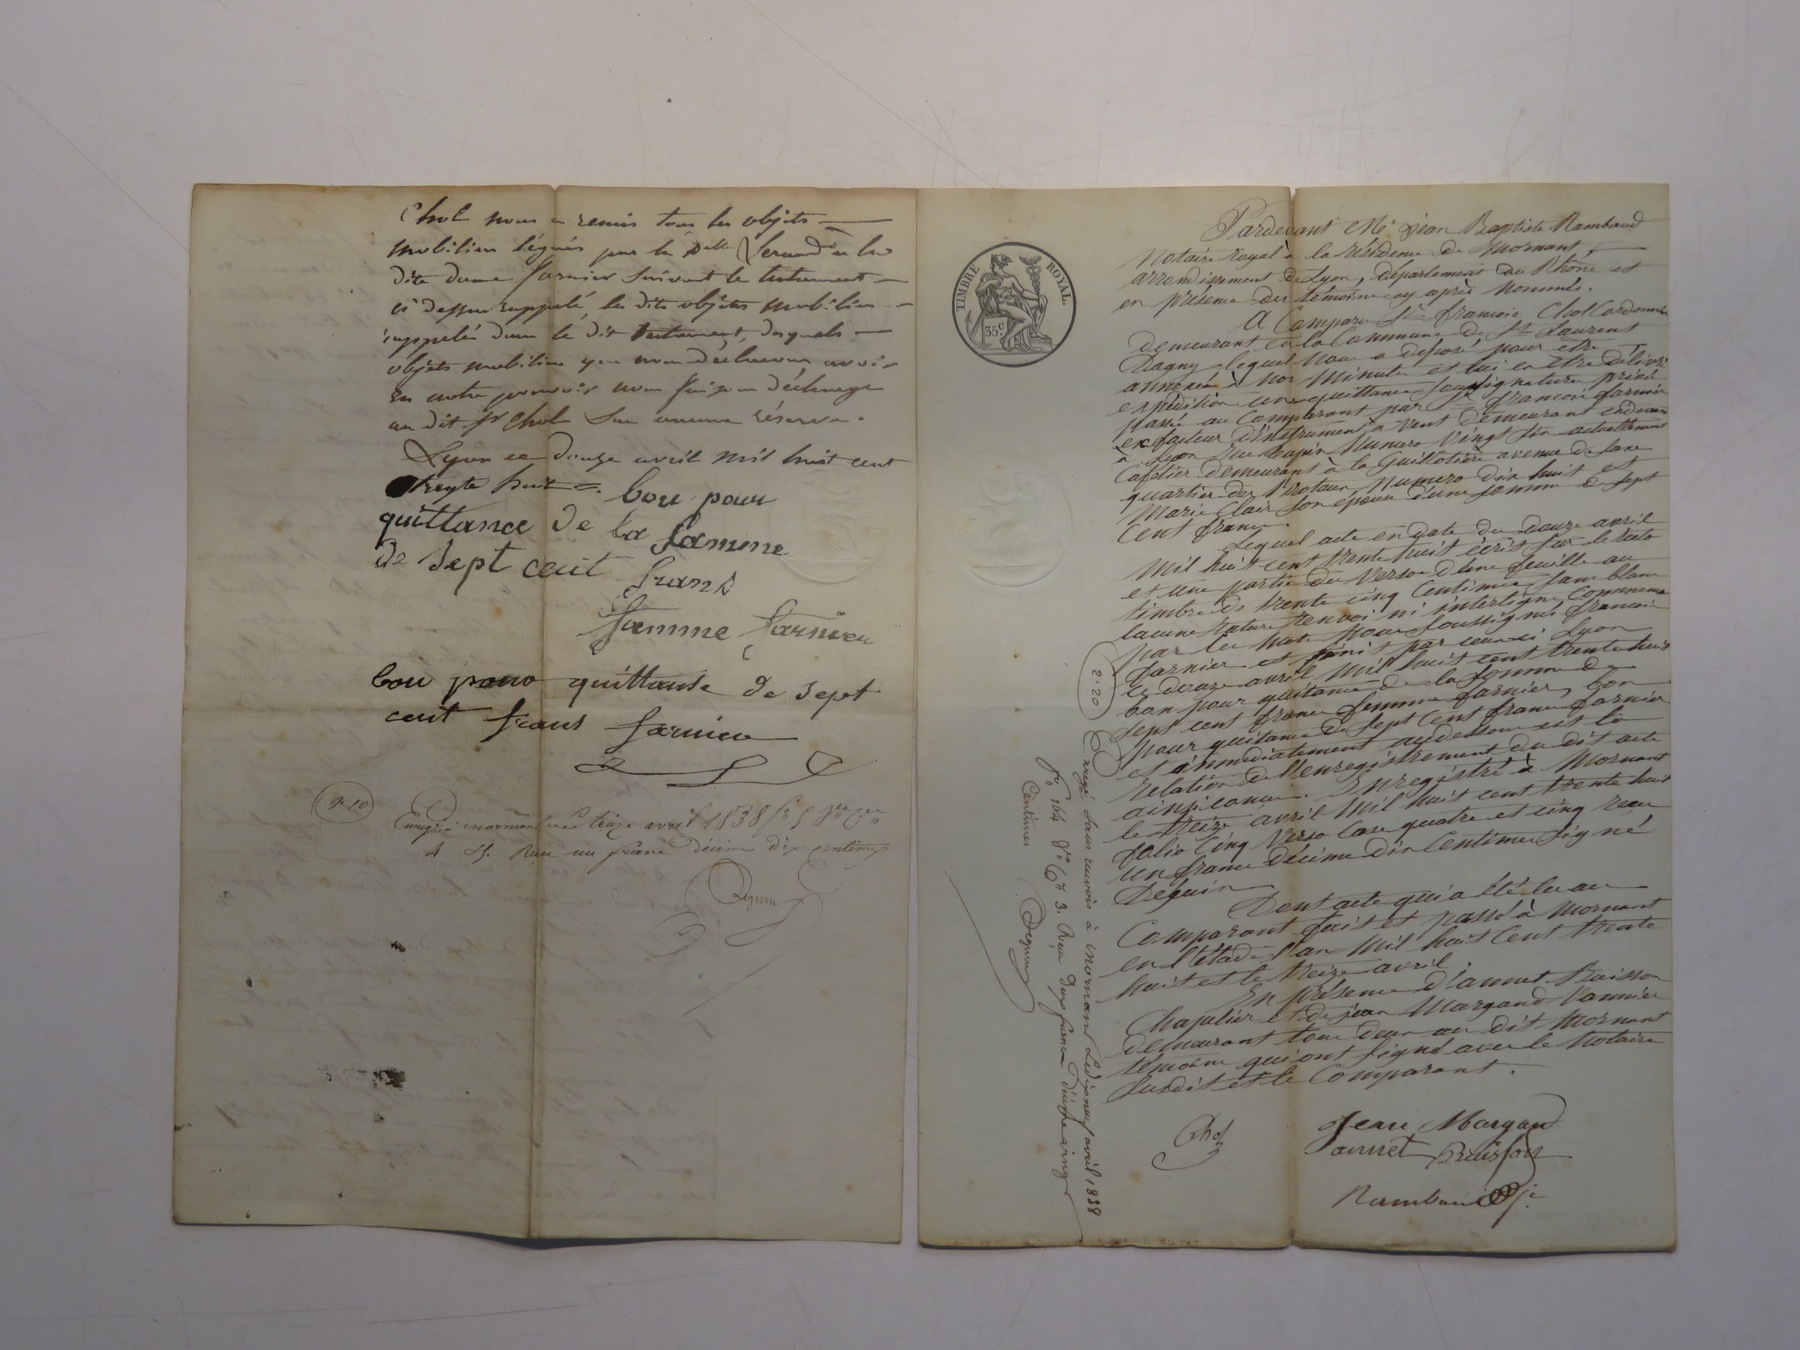 Chol nous a remis tous les objets
mobiliers légués par la Dlle Ferrand à la
dite dame farnier suivant le testament
ci dessus rappelé, les dits objets mobiliers
rappelés dans le dit testament, desquels
objets mobiliers que nous déclarons avoir
en notre pouvoir nous faisons décharge
au dit Sr Chol sans aucune réserve.
Lyon ce douze avril mil huit cent
trente huit. bou pour
quittance de la Somme
de sept cent frans
famme farnier
bou pour quittanse de sept
cent frans farnier
1. 10
Enregistré à mornant le treize avril 1838 fo 5 Vo Cses
4 et 5. Reçu un franc décime dix centimes
Deguin
TIMBRE ROYAL.
35 c
Pardevant Me Jean Baptiste Rambaud
Notaire royal à la résidence de Mornant,
arrondissement de Lyon, département du Rhône et
en présence des témoins cy après nommés.
A Comparu Sr françois Chol Cordonnier
demeurant en la Commune de St Laurent
Dagny, lequel nous a déposé pour être
annexée à nos minutes et lui en être délivré
expédition une quittance sous signature privée
passée au Comparant par Sr françois farnier
ex facteur d'instruments à vent demeurant
à Lyon Numero Vingt Six actuellement
Cafetier demeurant à la Guillotière avenue de Saxe
quartier des Brotaux Numero dix huit et
Marie Clair son épouse d'une somme de sept
Cent francs
Lequel acte en date du douze avril
Mil huit cent trente huit écrit sur le recto
et une partie du Verso d'une feuille au
timbre de trente cinq Centimes, sans blanc
lacune rature renvoi ni interligne Commence
par les mots Nous Soussignés françois
farnier et finis par ceux ci Lyon
le douze avril Mil huit cent trente huit
bon pour quitance de la Somme de
sept cent francs femme farnier, bon
pour quitance de sept Cent francs farnier
et immédiatement au dessous est la
relation de l'enregistrement du dit acte
ainsi conçue. Enregistré à Mornant
le treize avril Mil huit cent trente huit
folio Cinq Verso Case quatre et cinq reçu
un franc décime dix Centimes Signé
Deguin
Dont acte qui a été lu au
Comparant fait et passé à Mornant
en l'étude l'an Mil huit Cent trente
huit et le treize avril.
En présence d'annet Buisson
Chapelier et de jean Margand Vannier
demeurant tous deux au dit Mornant
témoins qui ont Signé avec le Notaire
Susdit et le Comparant.
Chol
Jean Margand
annet Buisson
Rambaud
2. 20
Enregé sans renvois à mornant avril 1838
fo 164 Vo Ce 3. Reçu deux francs décime vingt
Centimes
Deguin